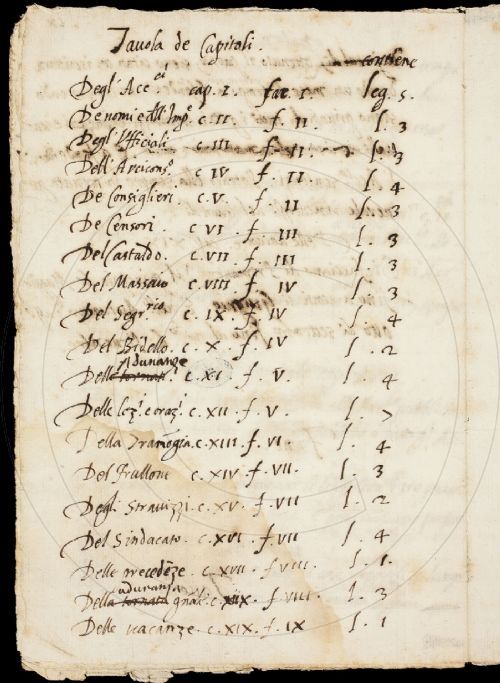 Tavola de Capitoli.
contiene
Degl' Acc.ci cap. I. fac. I. leg. 5.
De nomi e dell' Imp.e c. II f. II. l. 3
Degl' Ufficiali c. III f. II. l. 3
Dell' Arcicons.o c. IV f. II l. 4
De Consiglieri c. V. f. II l. 3
De Censori. c. VI f. III l. 3
Del Castaldo. c. VII f. III l. 3
Del Massaio c. VIII f. IV l. 3
Del Segr.rio c. IX f. IV l. 4
Del Bidello. c. X. f. IV l. 2
Delle Adunanze c. XI f. V. l. 4
Delle lez.i e oraz.i c. XII. f. V. l. 7
Della Tramogia. c. XIII f. VI. l. 4
Del Frullone c. XIV f. VII. l. 3
Degli Stravizzi. c. XV. f. VII l. 2
Del Sindacato. c. XVI f. VII l. 4
Delle precedẽze. c. XVII f. VIII. l. 1.
Della adunanza gñal. c. XIIX f. VIII. l. 3
Delle vacanze. c. XIX. f. IX l. 1